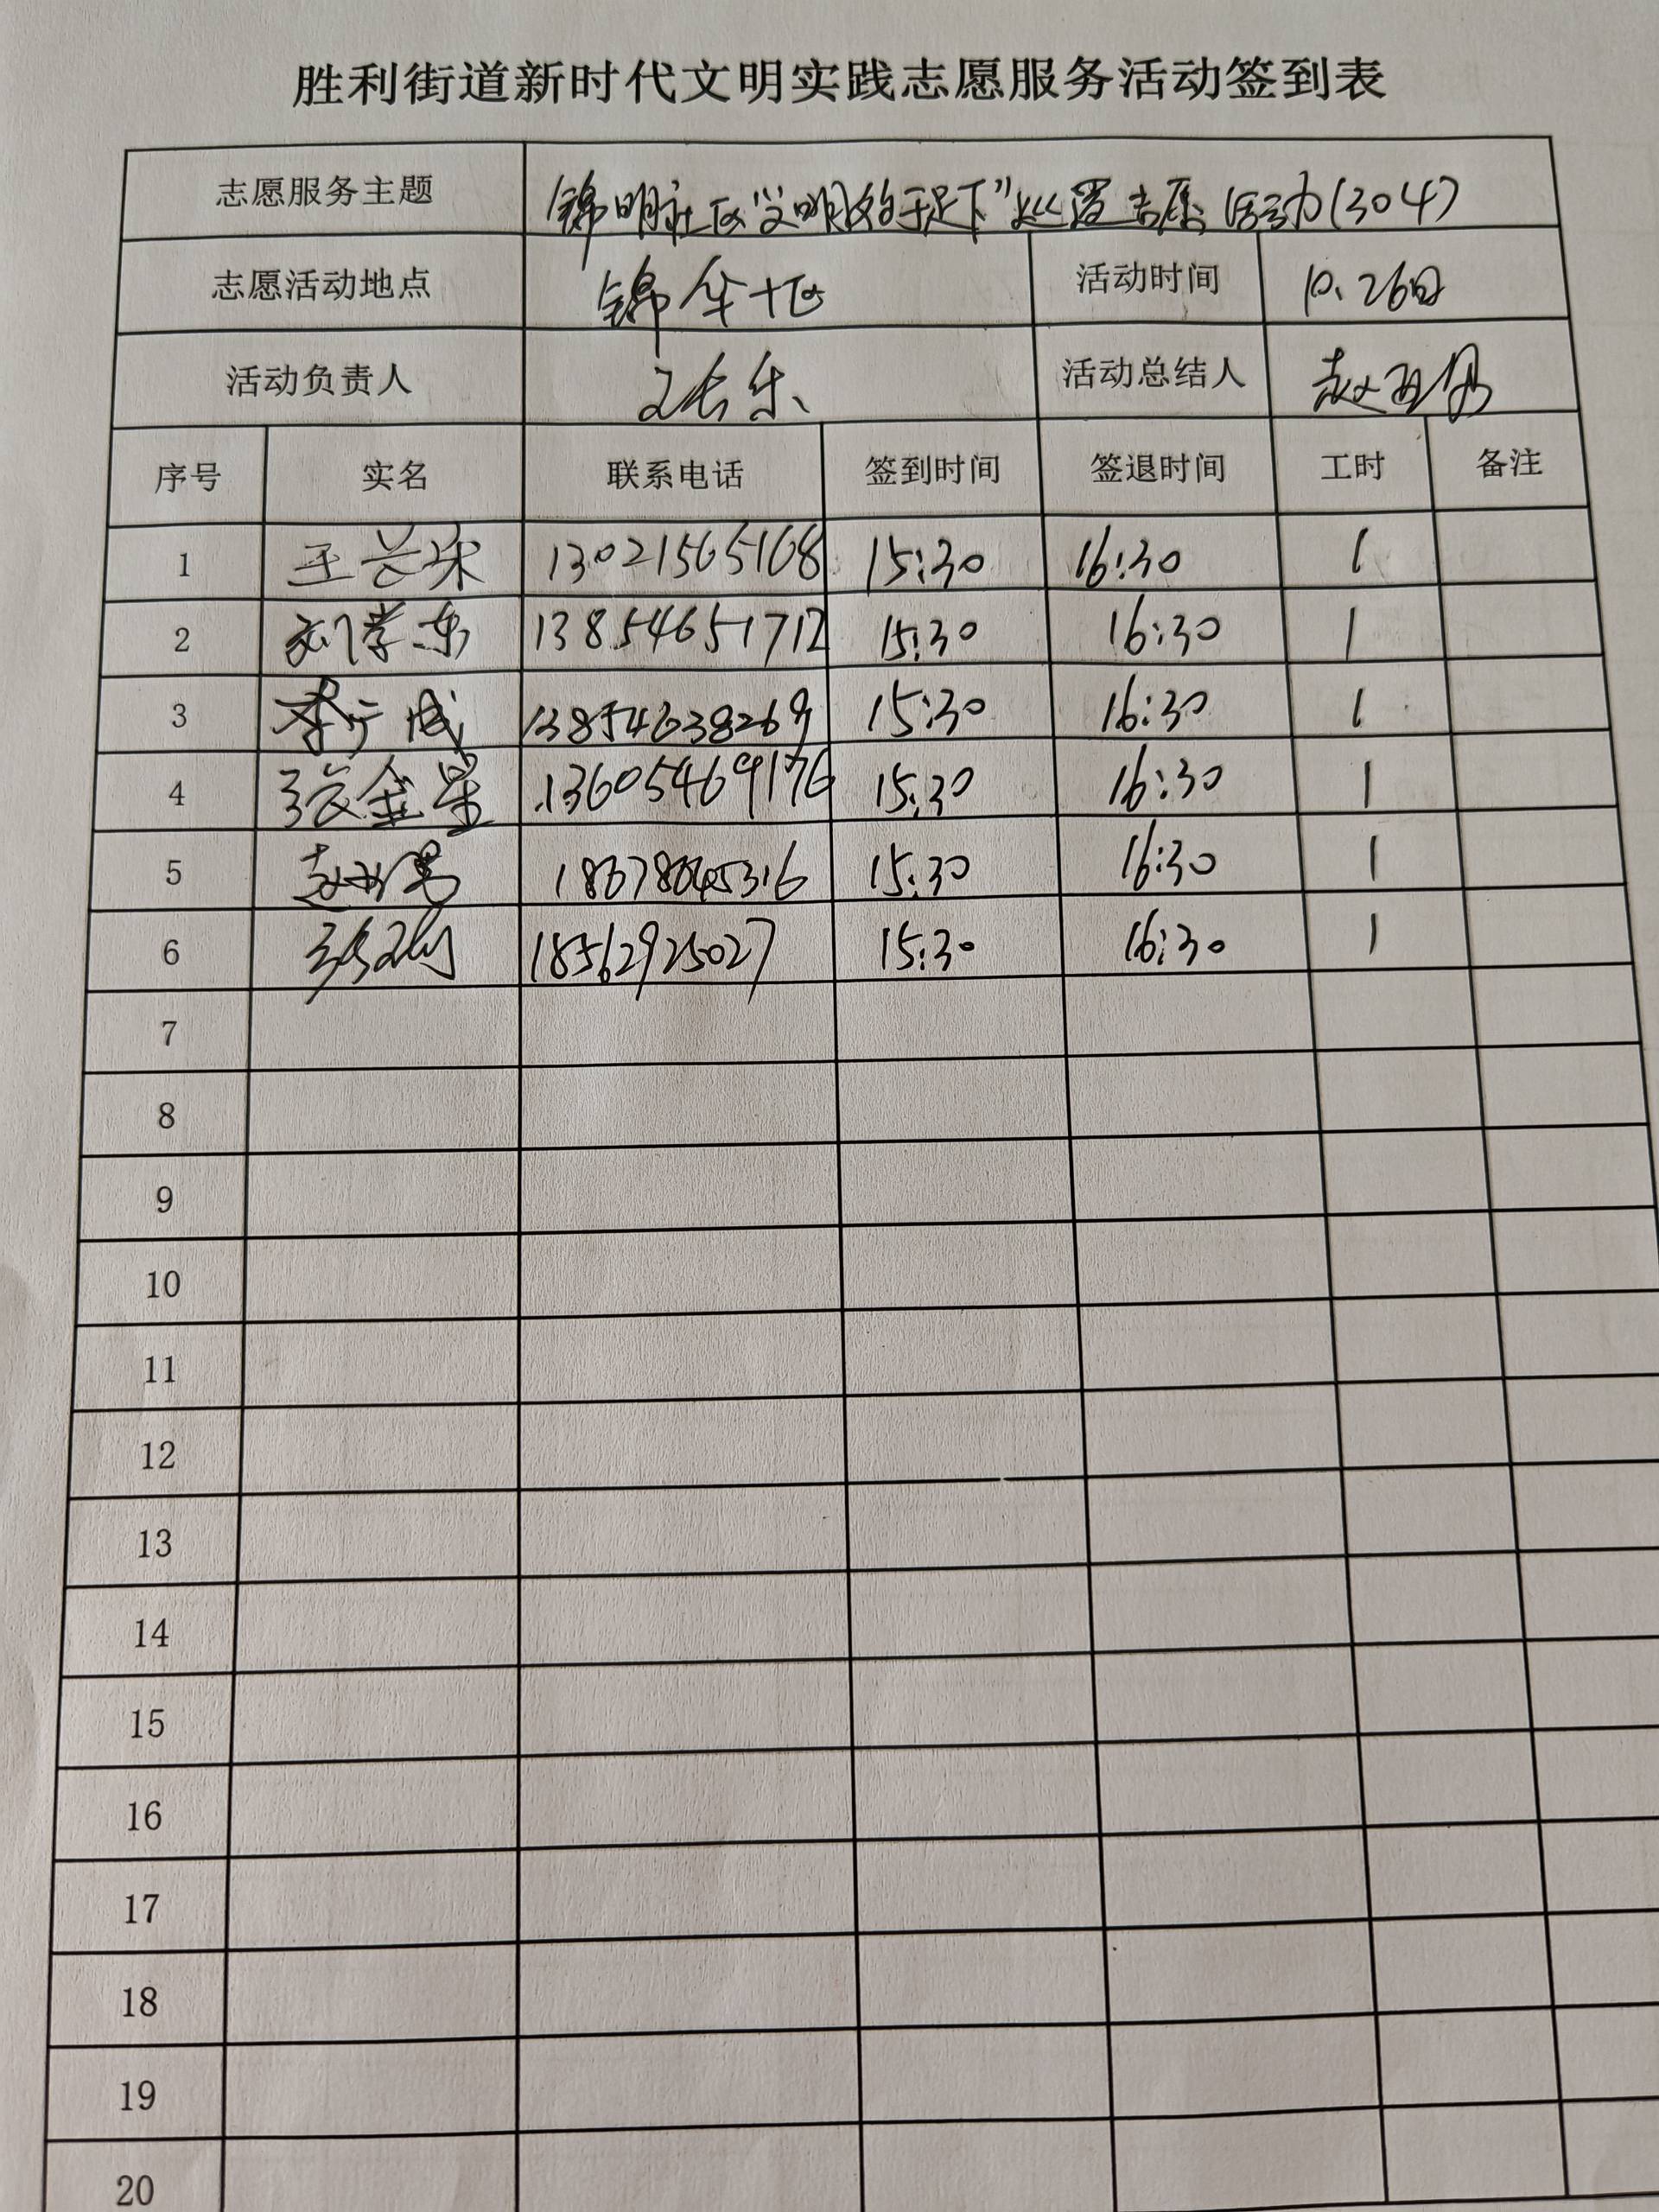 胜利街道新时代文明实践志愿服务活动签到表
志愿服务主题 锦明社区“文明始于足下”巡逻志愿活动(304)
志愿活动地点 锦华十区 活动时间 10.26日
活动负责人 活动总结人 赵
序号 实名 联系电话 签到时间 签退时间 工时 备注
1 王 13021565168 15:30 16:30 1
2 刘学东 13854651712 15:30 16:30 1
3 李广成 13854638269 15:30 16:30 1
4 张金星 13605469176 15:30 16:30 1
5 赵 18678045316 15:30 16:30 1
6 18562925027 15:30 16:30 1
7
8
9
10
11
12
13
14
15
16
17
18
19
20